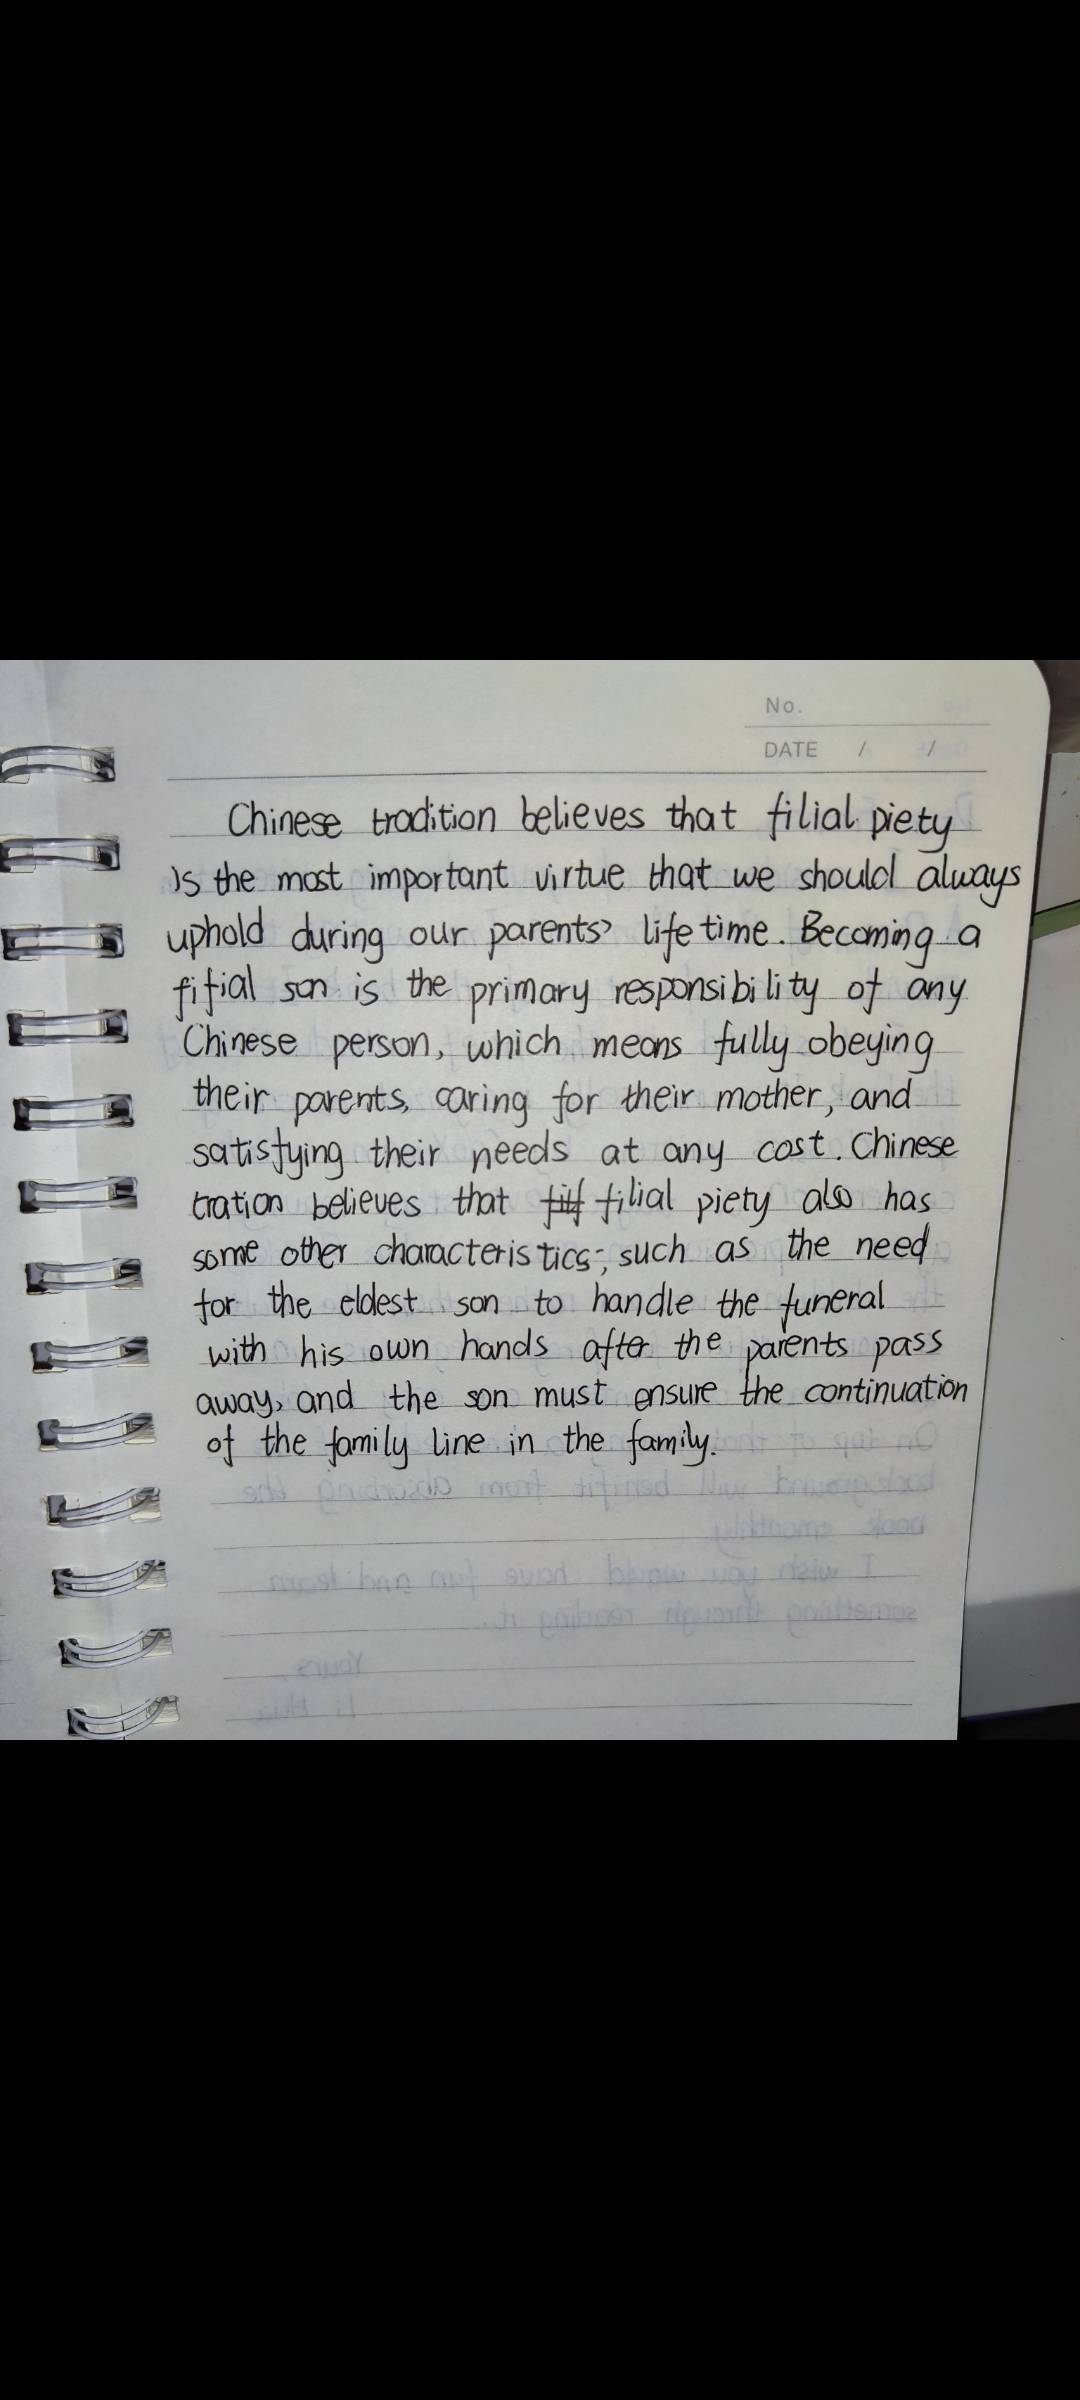 No.
DATE / /
Chinese tradition believes that filial piety
is the most important virtue that we should always
uphold during our parents' life time. Becoming a
fifial son is the primary responsibility of any
Chinese person, which means fully obeying
their parents, caring for their mother, and
satisfying their needs at any cost. Chinese
tration believes that filial piety also has
some other characteristics, such as the need
for the eldest son to handle the funeral
with his own hands after the parents pass
away, and the son must ensure the continuation
of the family line in the family.